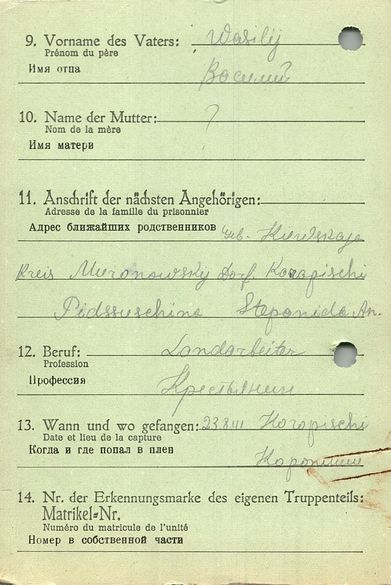 9. Vorname des Vaters: Wasilij
Prénom du père
Имя отца Василий
10. Name der Mutter: ?
Nom de la mère
Имя матери
11. Anschrift der nächsten Angehörigen:
Adresse de la famille du prisonnier
Адрес ближайших родственников Geb. Kiewskaje
Kreis Muronowskij Dorf. Karapischi
Pidssuschina Stepanida An.
12. Beruf: Landarbeiter
Profession
Профессия Крестьянин
13. Wann und wo gefangen: 23.8.41 Karapischi
Date et lieu de la capture
Когда и где попал в плен
14. Nr. der Erkennungsmarke des eigenen Truppenteils:
Matrikel=Nr.
Numéro du matricule de l'unité
Номер в собственной части